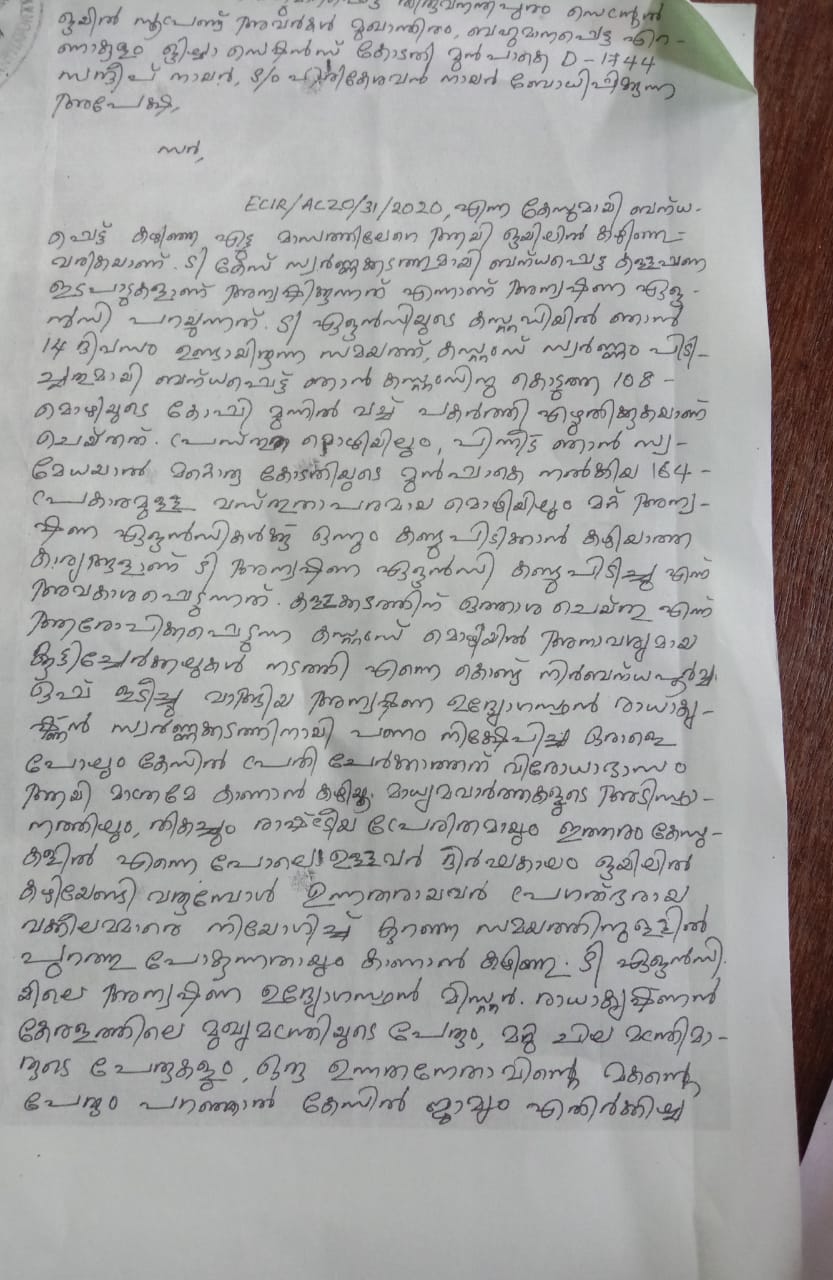 തിരുവനന്തപുരം സെന്റ്രൽ
ജയിൽ സൂപ്രണ്ട് അവർകൾ മുഖാന്തിരം, ബഹുമാനപ്പെട്ട എറ-
ണാകുളം ജില്ലാ സെഷൻസ് കോടതി മുൻപാകെ D-1744
സന്ദീപ് നായർ, S/o നായർ ബോധിപ്പിക്കുന്ന
അപേക്ഷ,
സർ,
ECIR/ 31/2020, എന്ന കേസുമായി ബന്ധ-
പ്പെട്ട് കഴിഞ്ഞ എട്ടു മാസത്തിലേറെ ആയി ജയിലിൽ കഴിഞ്ഞു-
വരികയാണ്. ടി കേസ് സ്വർണ്ണക്കടത്തുമായി ബന്ധപ്പെട്ട കള്ളപ്പണ
ഇടപാടുകളാണ് അന്വഷിക്കുന്നത് എന്നാണ് അന്വഷണ ഏജ-
ൻസി പറയുന്നത്. ടി ഏജൻസിയുടെ കസ്റ്റഡിയിൽ ഞാൻ
14 ദിവസം ഉണ്ടായിരുന്ന സമയത്ത്, കസ്റ്റംസ് സ്വർണ്ണം പിടി-
ച്ചതുമായി ബന്ധപ്പെട്ട് ഞാൻ കസ്റ്റംസിനു കൊടുത്ത 108-
മൊഴിയുടെ കോപ്പി മുന്നിൽ വച്ച് പകർത്തി എഴുതിക്കുകയാണ്
ചെയ്തത്. പ്രസ്തുത മൊഴിയിലും, പിന്നീട് ഞാൻ സ്വ-
മേധയാൽ മറ്റൊരു കോടതിയുടെ മുൻപാകെ നൽകിയ 164-
പ്രകാരമുള്ള വസ്തുതാപരമായ മൊഴിയിലും മറ്റ് അന്വ-
ഷണ ഏജൻസികൾക്ക് ഒന്നും കണ്ടുപിടിക്കാൻ കഴിയാത്ത
കാര്യങ്ങളാണ് ടി അന്വഷണ ഏജൻസി കണ്ടുപിടിച്ചു എന്ന്
അവകാശപ്പെടുന്നത്. കള്ളക്കടത്തിന് ഒത്താശ ചെയ്തു എന്ന്
ആരോപിക്കപ്പെടുന്ന കസ്റ്റംസ് മൊഴിയിൽ അനാവശ്യമായ
കൂട്ടിച്ചേർക്കലുകൾ നടത്തി എന്നെ കൊണ്ട് നിർബന്ധപൂർവ്വം
ഒപ്പ് ഇടീച്ചു വാങ്ങിയ അന്വഷണ ഉദ്യോഗസ്ഥൻ രാധാകൃ-
ഷ്ണൻ സ്വർണ്ണക്കടത്തിനായി പണം നിക്ഷേപിച്ച ഒരാളെ
പോലും കേസിൽ പ്രതി ചേർക്കാത്തത് വിരോധാഭാസം
ആയി മാത്രമേ കാണാൻ കഴിയൂ. മാധ്യമവാർത്തകളുടെ അടിസ്ഥാ-
നത്തിലും, തികച്ചും രാഷ്ട്രീയ പ്രേരിതമായും ഇത്തരം കേസു-
കളിൽ എന്നെ പോലെ ഉള്ളവർ ദീർഘകാലം ജയിലിൽ
കഴിയേണ്ടി വരുമ്പോൾ ഉന്നതരായവർ പ്രഗത്ഭരായ
വക്കീലന്മാരെ നിയോഗിച്ച് കുറഞ്ഞ സമയത്തിനുള്ളിൽ
പുറത്തു പോകുന്നതായും കാണാൻ കഴിഞ്ഞു. ടി ഏജൻസി-
യിലെ അന്വഷണ ഉദ്യോഗസ്ഥൻ മിസ്റ്റർ. രാധാകൃഷ്ണൻ
കേരളത്തിലെ മുഖ്യമന്ത്രിയുടെ പേരും, മറ്റു ചില മന്ത്രിമാ-
രുടെ പേരുകളും, ഒരു ഉന്നതനേതാവിന്റെ മകന്റെ
പേരും പറഞ്ഞാൽ കേസിൽ ജാമ്യം എതിർക്കില്ല